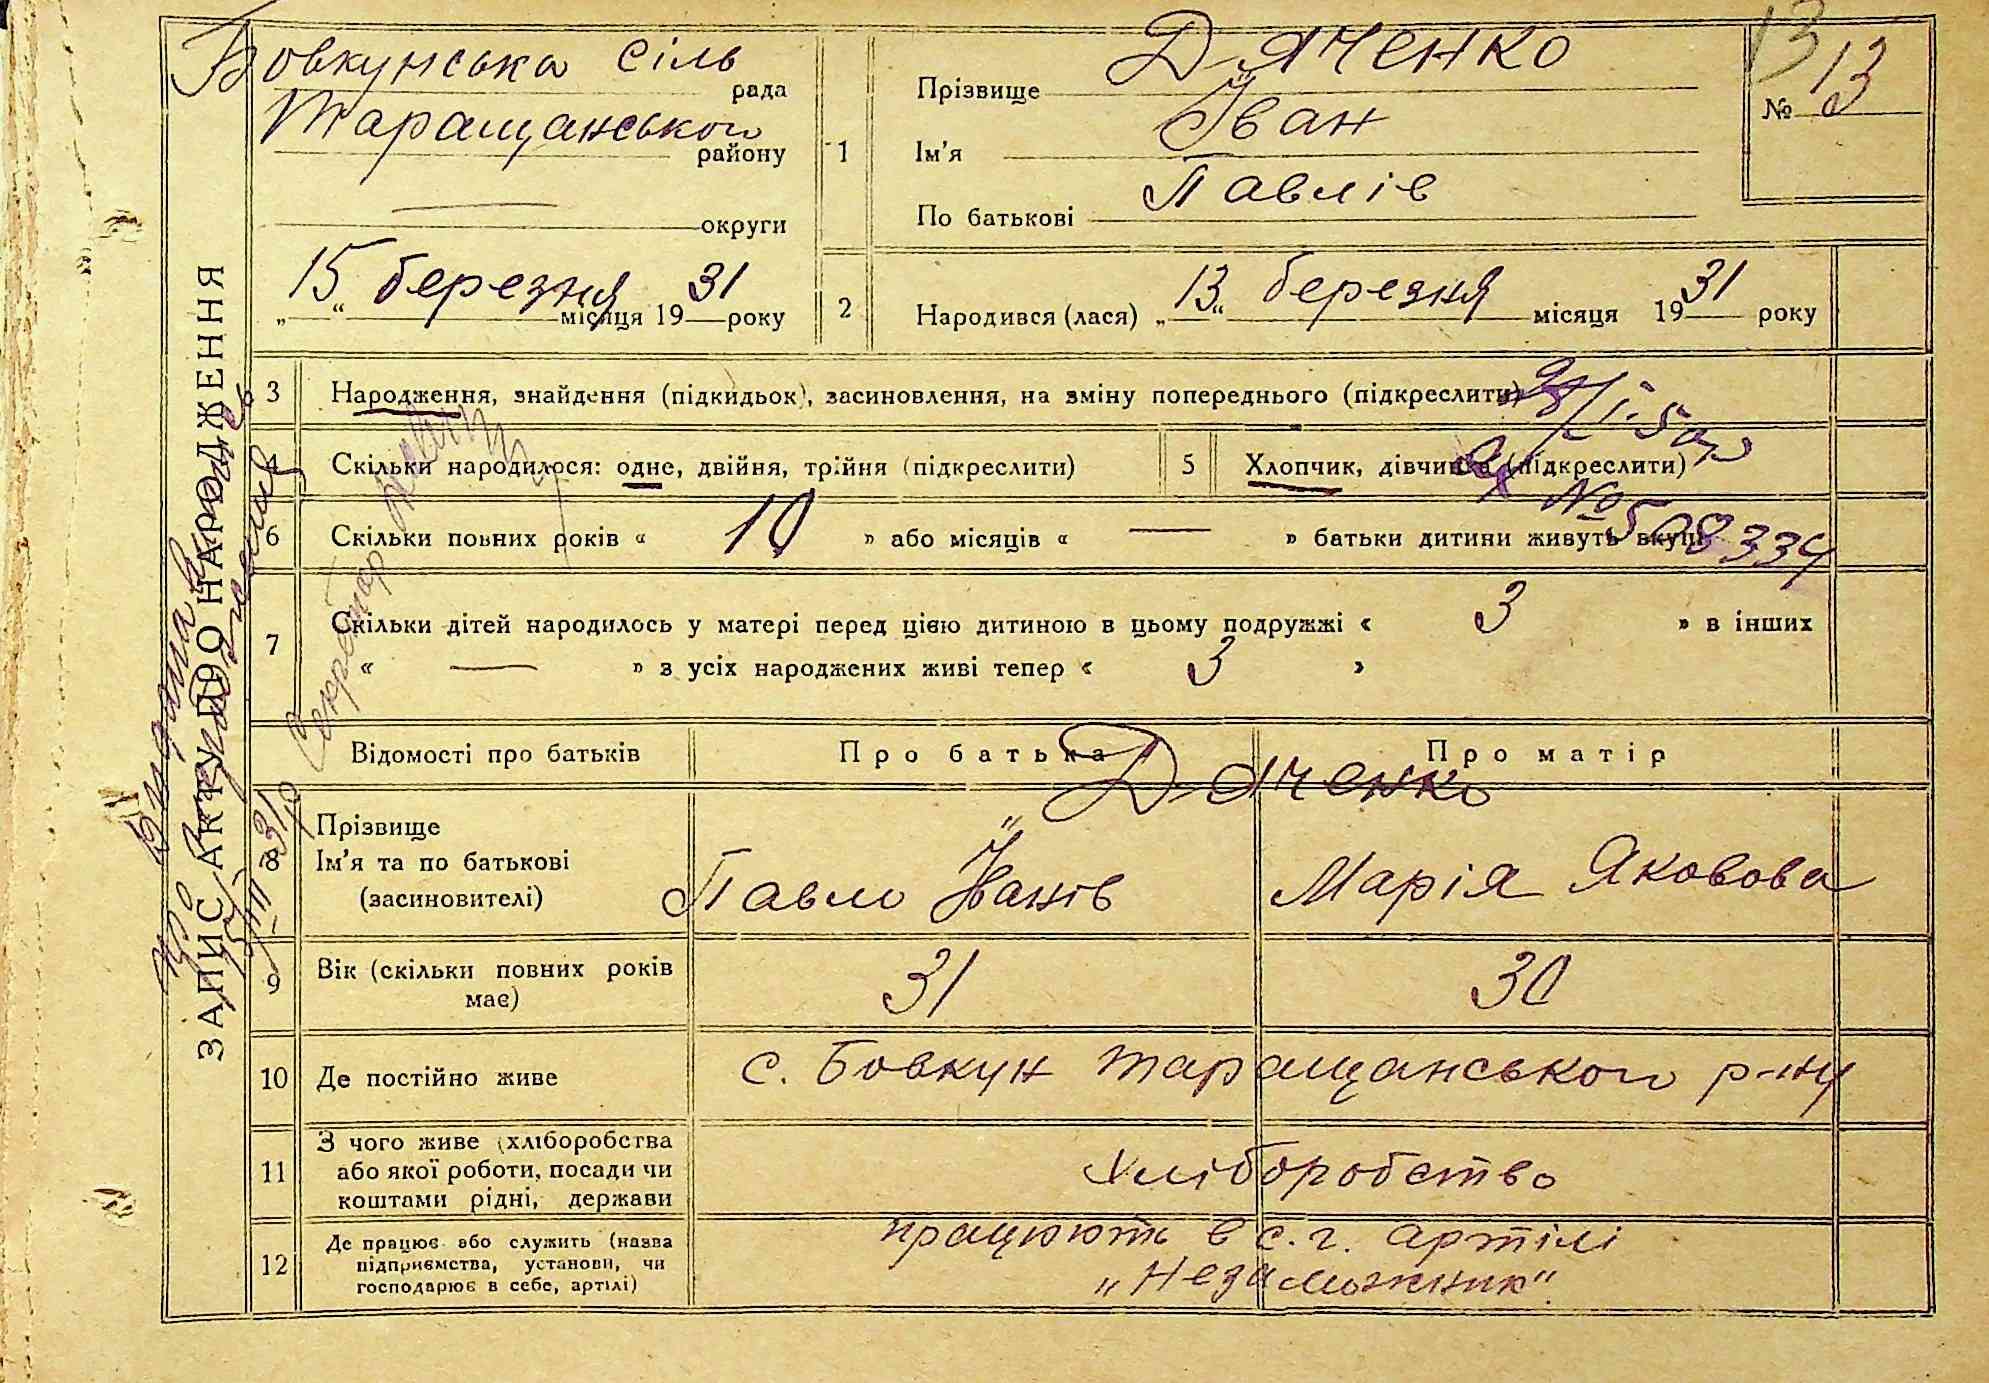 ЗАПИС АКТУ ПРО НАРОДЖЕННЯ
Бовкунська сіль
рада
Таращанського
району
округи
„15“ березня місяця 1931 року
1
Прізвище Дяченко
Ім'я Іван
По батькові Павлів
13
№ 13
2
Народився (лася) „13“ березня місяця 1931 року
3 Народження, знайдення (підкидьок), засиновлення, на зміну попереднього (підкреслити)
4 Скільки народилося: одне, двійня, трійня (підкреслити)
5 Хлопчик, дівчинка (підкреслити)
№ 508334
6 Скільки повних років « 10 » або місяців « — » батьки дитини живуть вкупі
7 Скільки дітей народилось у матері перед цією дитиною в цьому подружжі « 3 » в інших
« — » з усіх народжених живі тепер « 3 »
Відомості про батьків
Про батька
Про матір
Дяченко
8 Прізвище
Ім'я та по батькові
(засиновителі)
Павло Іванів
Марія Яковова
9 Вік (скільки повних років
має)
31
30
10 Де постійно живе
с. Бовкун Таращанського р-ну
11 З чого живе (хліборобства
або якої роботи, посади чи
коштами рідні, держави
Хліборобство
12 Де працює або служить (назва
підприємства, установи, чи
господарює в себе, артілі)
працюють в с. г. артілі
„Незаможник“
Секретар